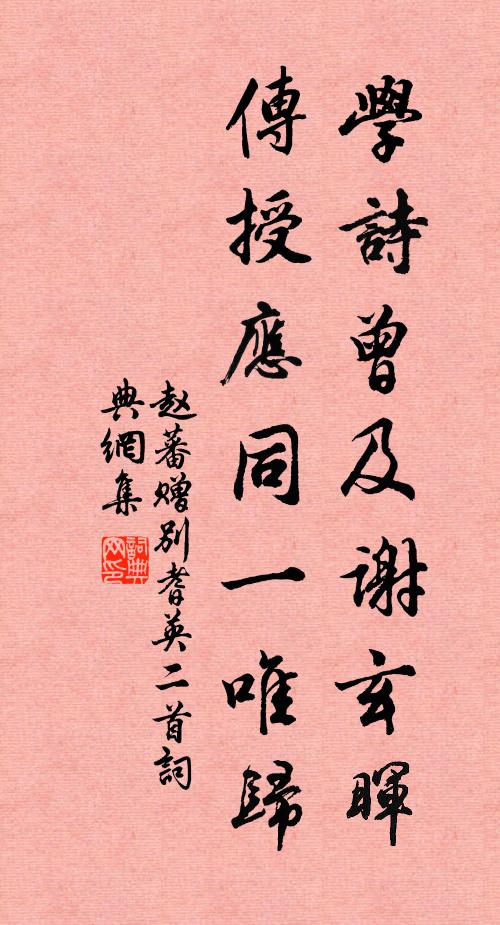 學詩曾及谢玄暉
傳授應同一唯歸
赵蕃赠别耆英二首詞
典網集
詞典網印